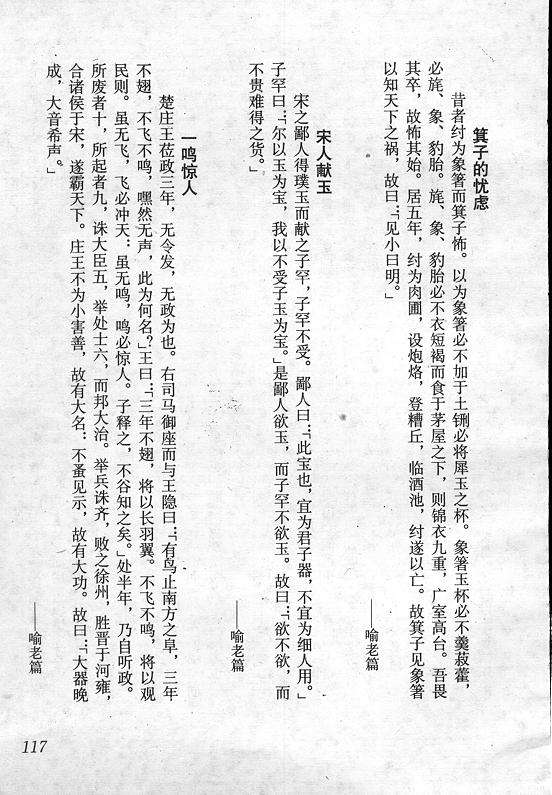 箕子的忧虑
昔者纣为象箸而箕子怖。以为象箸必不加于土铏必将犀玉之杯。象箸玉杯必不羹菽藿,
必旄、象、豹胎。旄、象、豹胎必不衣短褐而食于茅屋之下,则锦衣九重,广室高台。吾畏
其卒,故怖其始。居五年,纣为肉圃,设炮烙,登糟丘,临酒池,纣遂以亡。故箕子见象箸
以知天下之祸,故曰:「见小曰明。」
——喻老篇
宋人献玉
宋之鄙人得璞玉而献之子罕,子罕不受。鄙人曰:「此宝也,宜为君子器,不宜为细人用。」
子罕曰:「尔以玉为宝,我以不受子玉为宝。」是鄙人欲玉,而子罕不欲玉。故曰:「欲不欲,而
不贵难得之货。」
——喻老篇
一鸣惊人
楚庄王莅政三年,无令发,无政为也。右司马御座而与王隐曰:「有鸟止南方之阜,三年
不翅,不飞不鸣,嘿然无声,此为何名?」王曰:「三年不翅,将以长羽翼。不飞不鸣,将以观
民则。虽无飞,飞必冲天:虽无鸣,鸣必惊人。子释之,不谷知之矣。」处半年,乃自听政。
所废者十,所起者九,诛大臣五,举处士六,而邦大治。举兵诛齐,败之徐州,胜晋于河雍,
合诸侯于宋,遂霸天下。庄王不为小害善,故有大名:不蚤见示,故有大功。故曰:「大器晚
成,大音希声。」
——喻老篇
117